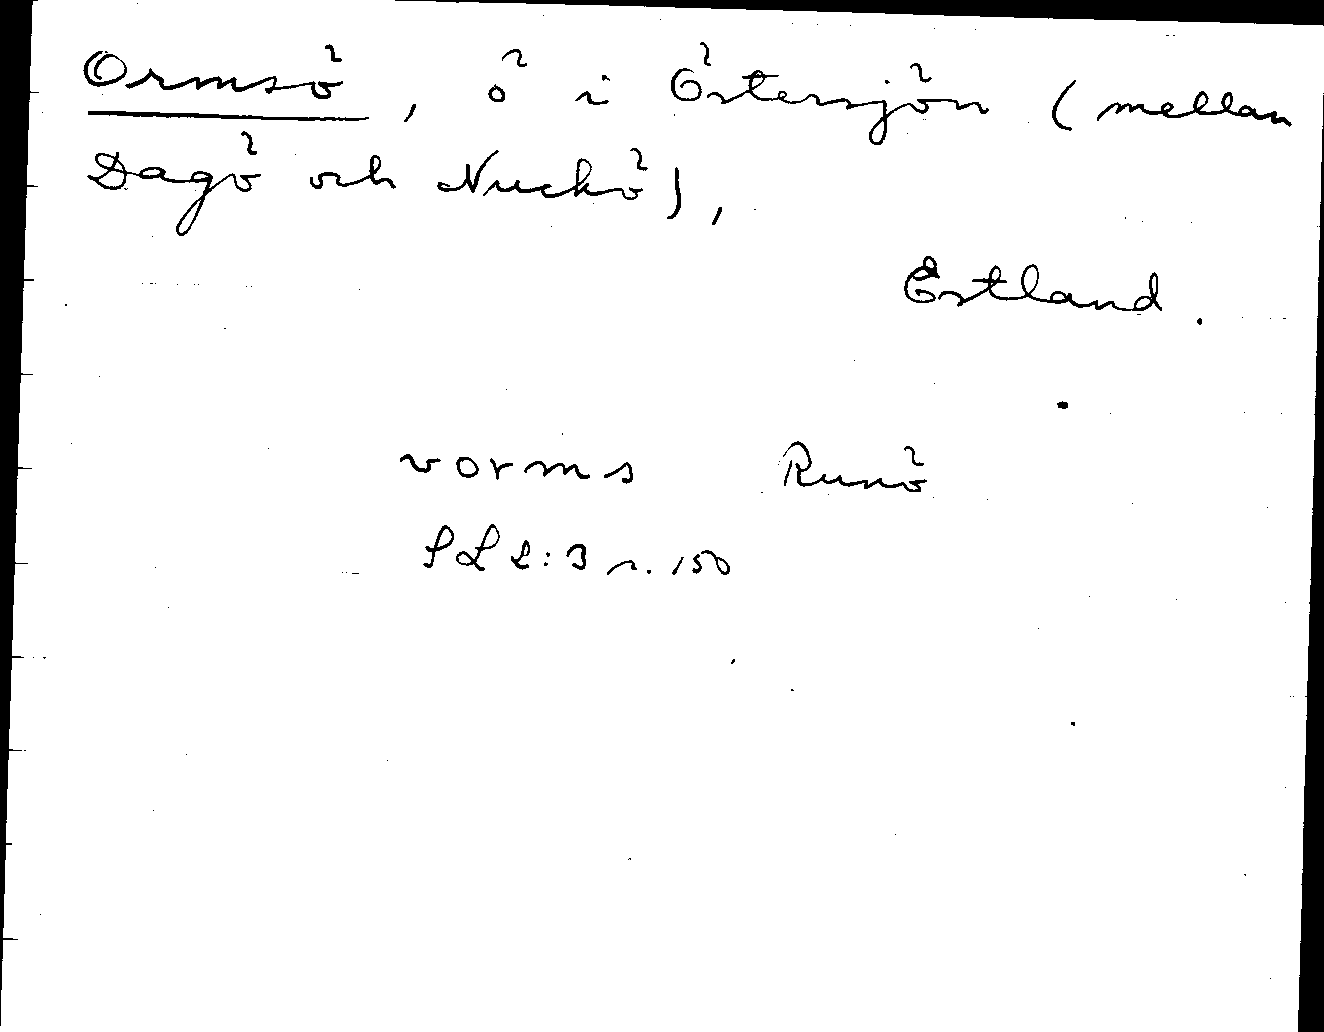 Ormsö, ö i Östersjön (mellan
Dagö och Nuckö),
Estland.
vorms Runö
SL 2:3 s. 150